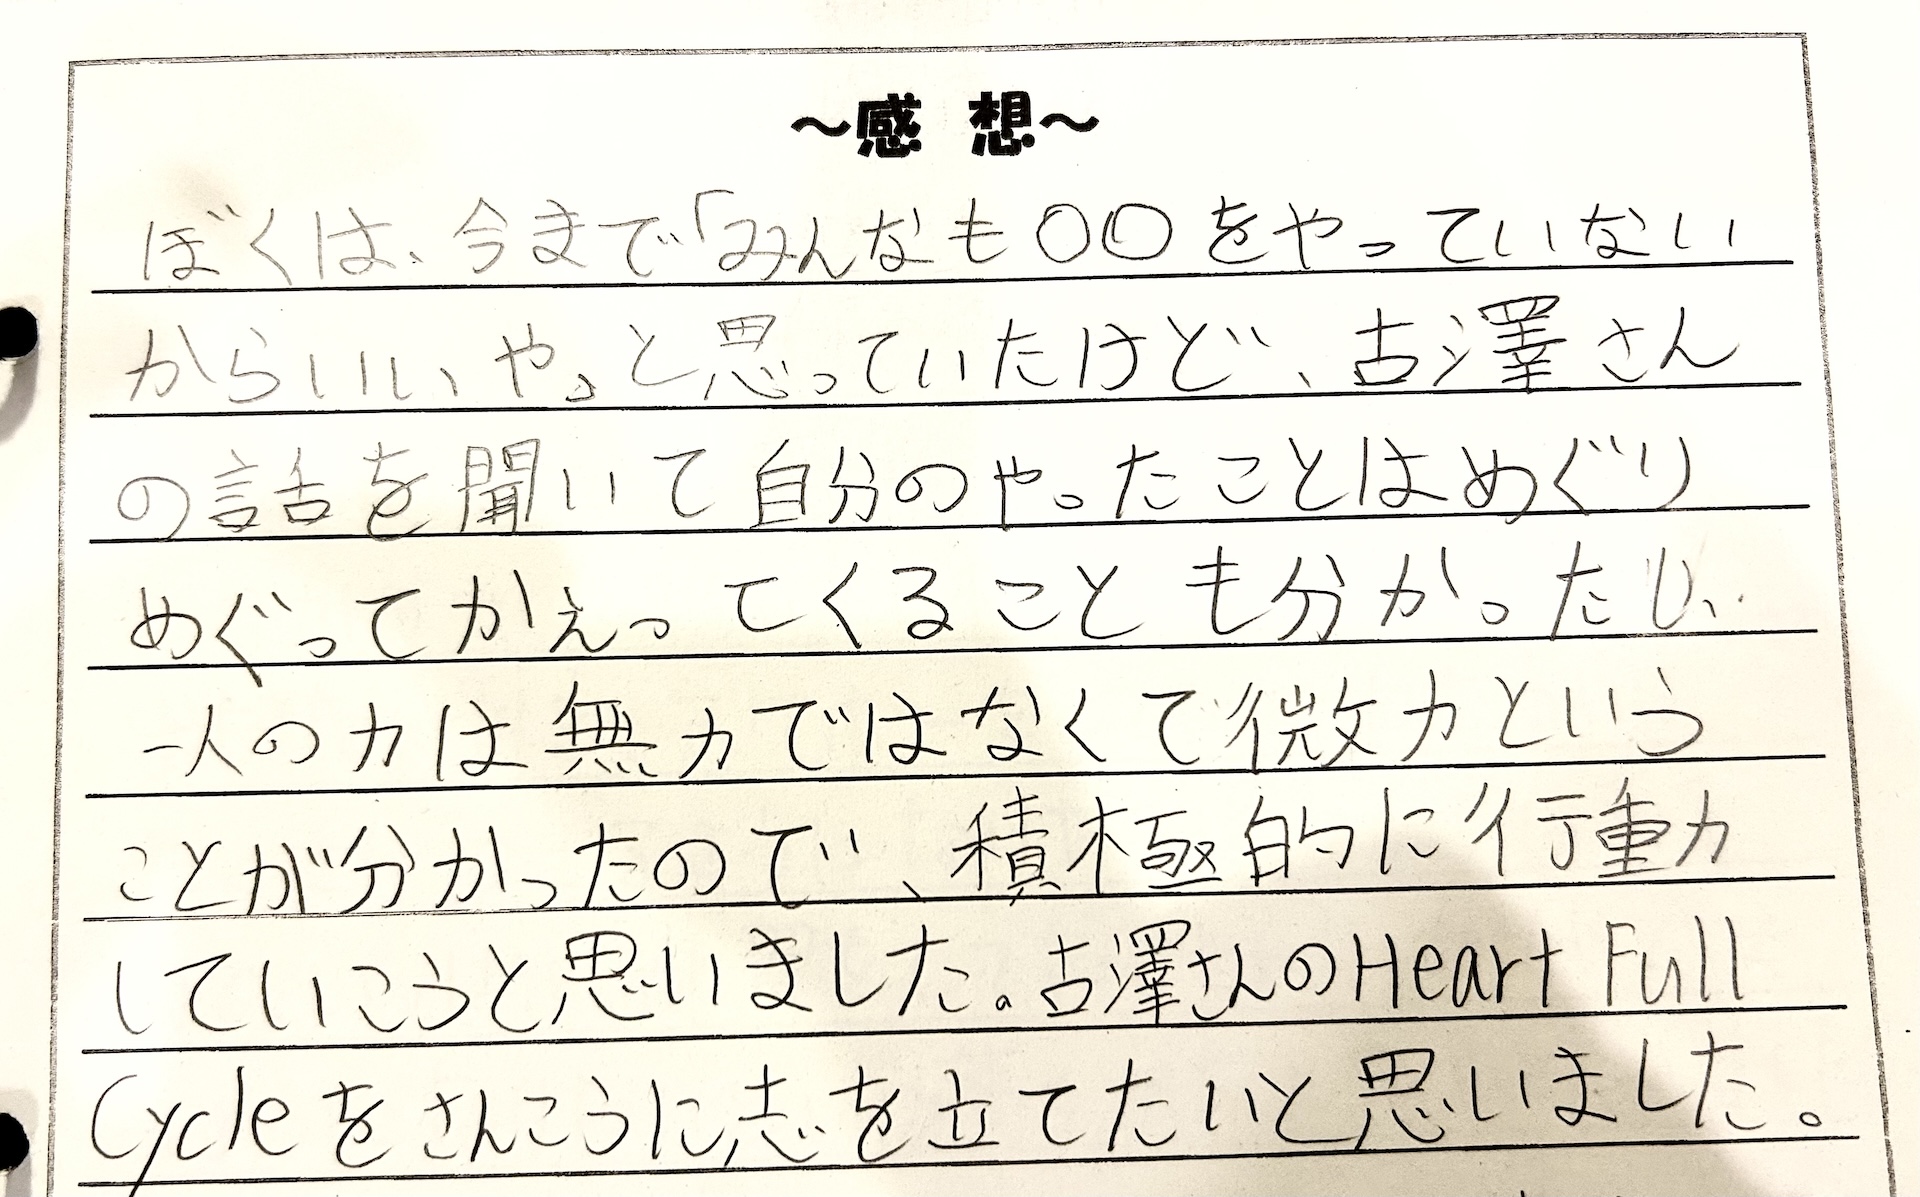 ～感 想～
ぼくは、今まで「みんなも〇〇をやっていない
からいいや」と思っていたけど、古澤さん
の話を聞いて自分のやったことはめぐり
めぐってかえってくることも分かったし、
一人の力は無力ではなくて微力という
ことが分かったので、積極的に行動
していこうと思いました。古澤さんのHeart Full
Cycleをさんこうに志を立てたいと思いました。